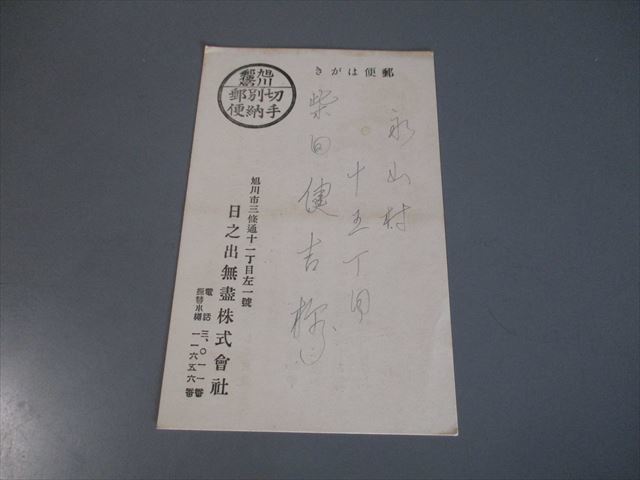 郵便はがき
旭川
郵便局
切手別納郵便
永山村
十五丁目
柴田健吉様
旭川市三條通十一丁目左一號
日之出無盡株式會社
電話 三、〇一一番
振替小樽 一一六五六番